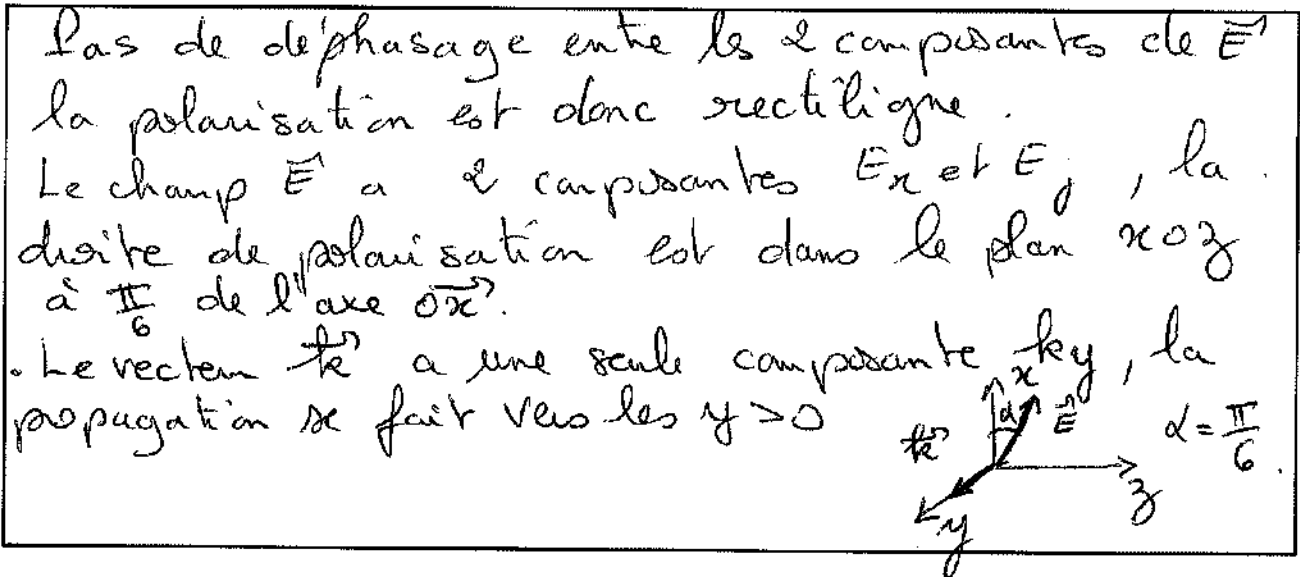 Pas de déphasage entre les 2 composantes de E⃗
la polarisation est donc rectiligne.
Le champ E⃗ a 2 composantes Ex et Ej, la
droite de polarisation est dans le plan xoz
à π/6 de l'axe ox⃗.
. Le vecteur k⃗ a une seule composante ky, la
propagation se fait vers les y > 0
x
α
E⃗
α = π/6.
k⃗
z
y